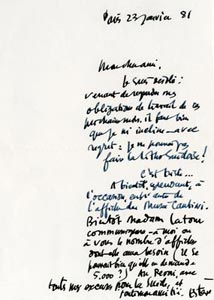 Paris 23 janvier 81
Mon cher ami,
Je suis désolé :
venant de reprendre mes
obligations de travail de ces
prochains mois, il faut bien
que je m'incline – avec
regret : je ne pourrai pas
faire la litho Suédoise !
C'est triste...
A bientôt, cependant, à
l'occasion, entrevente de
l'affiche du Musée Cantini.
Bientôt madame Latour
communiquera – à moi ou
à vous le nombre d'affiches
dont elle a besoin (il se
pourrait bien qu'elle en demande
5.000 ?) Au Revoir, avec
toutes mes excuses pour la Suède, et
Estève